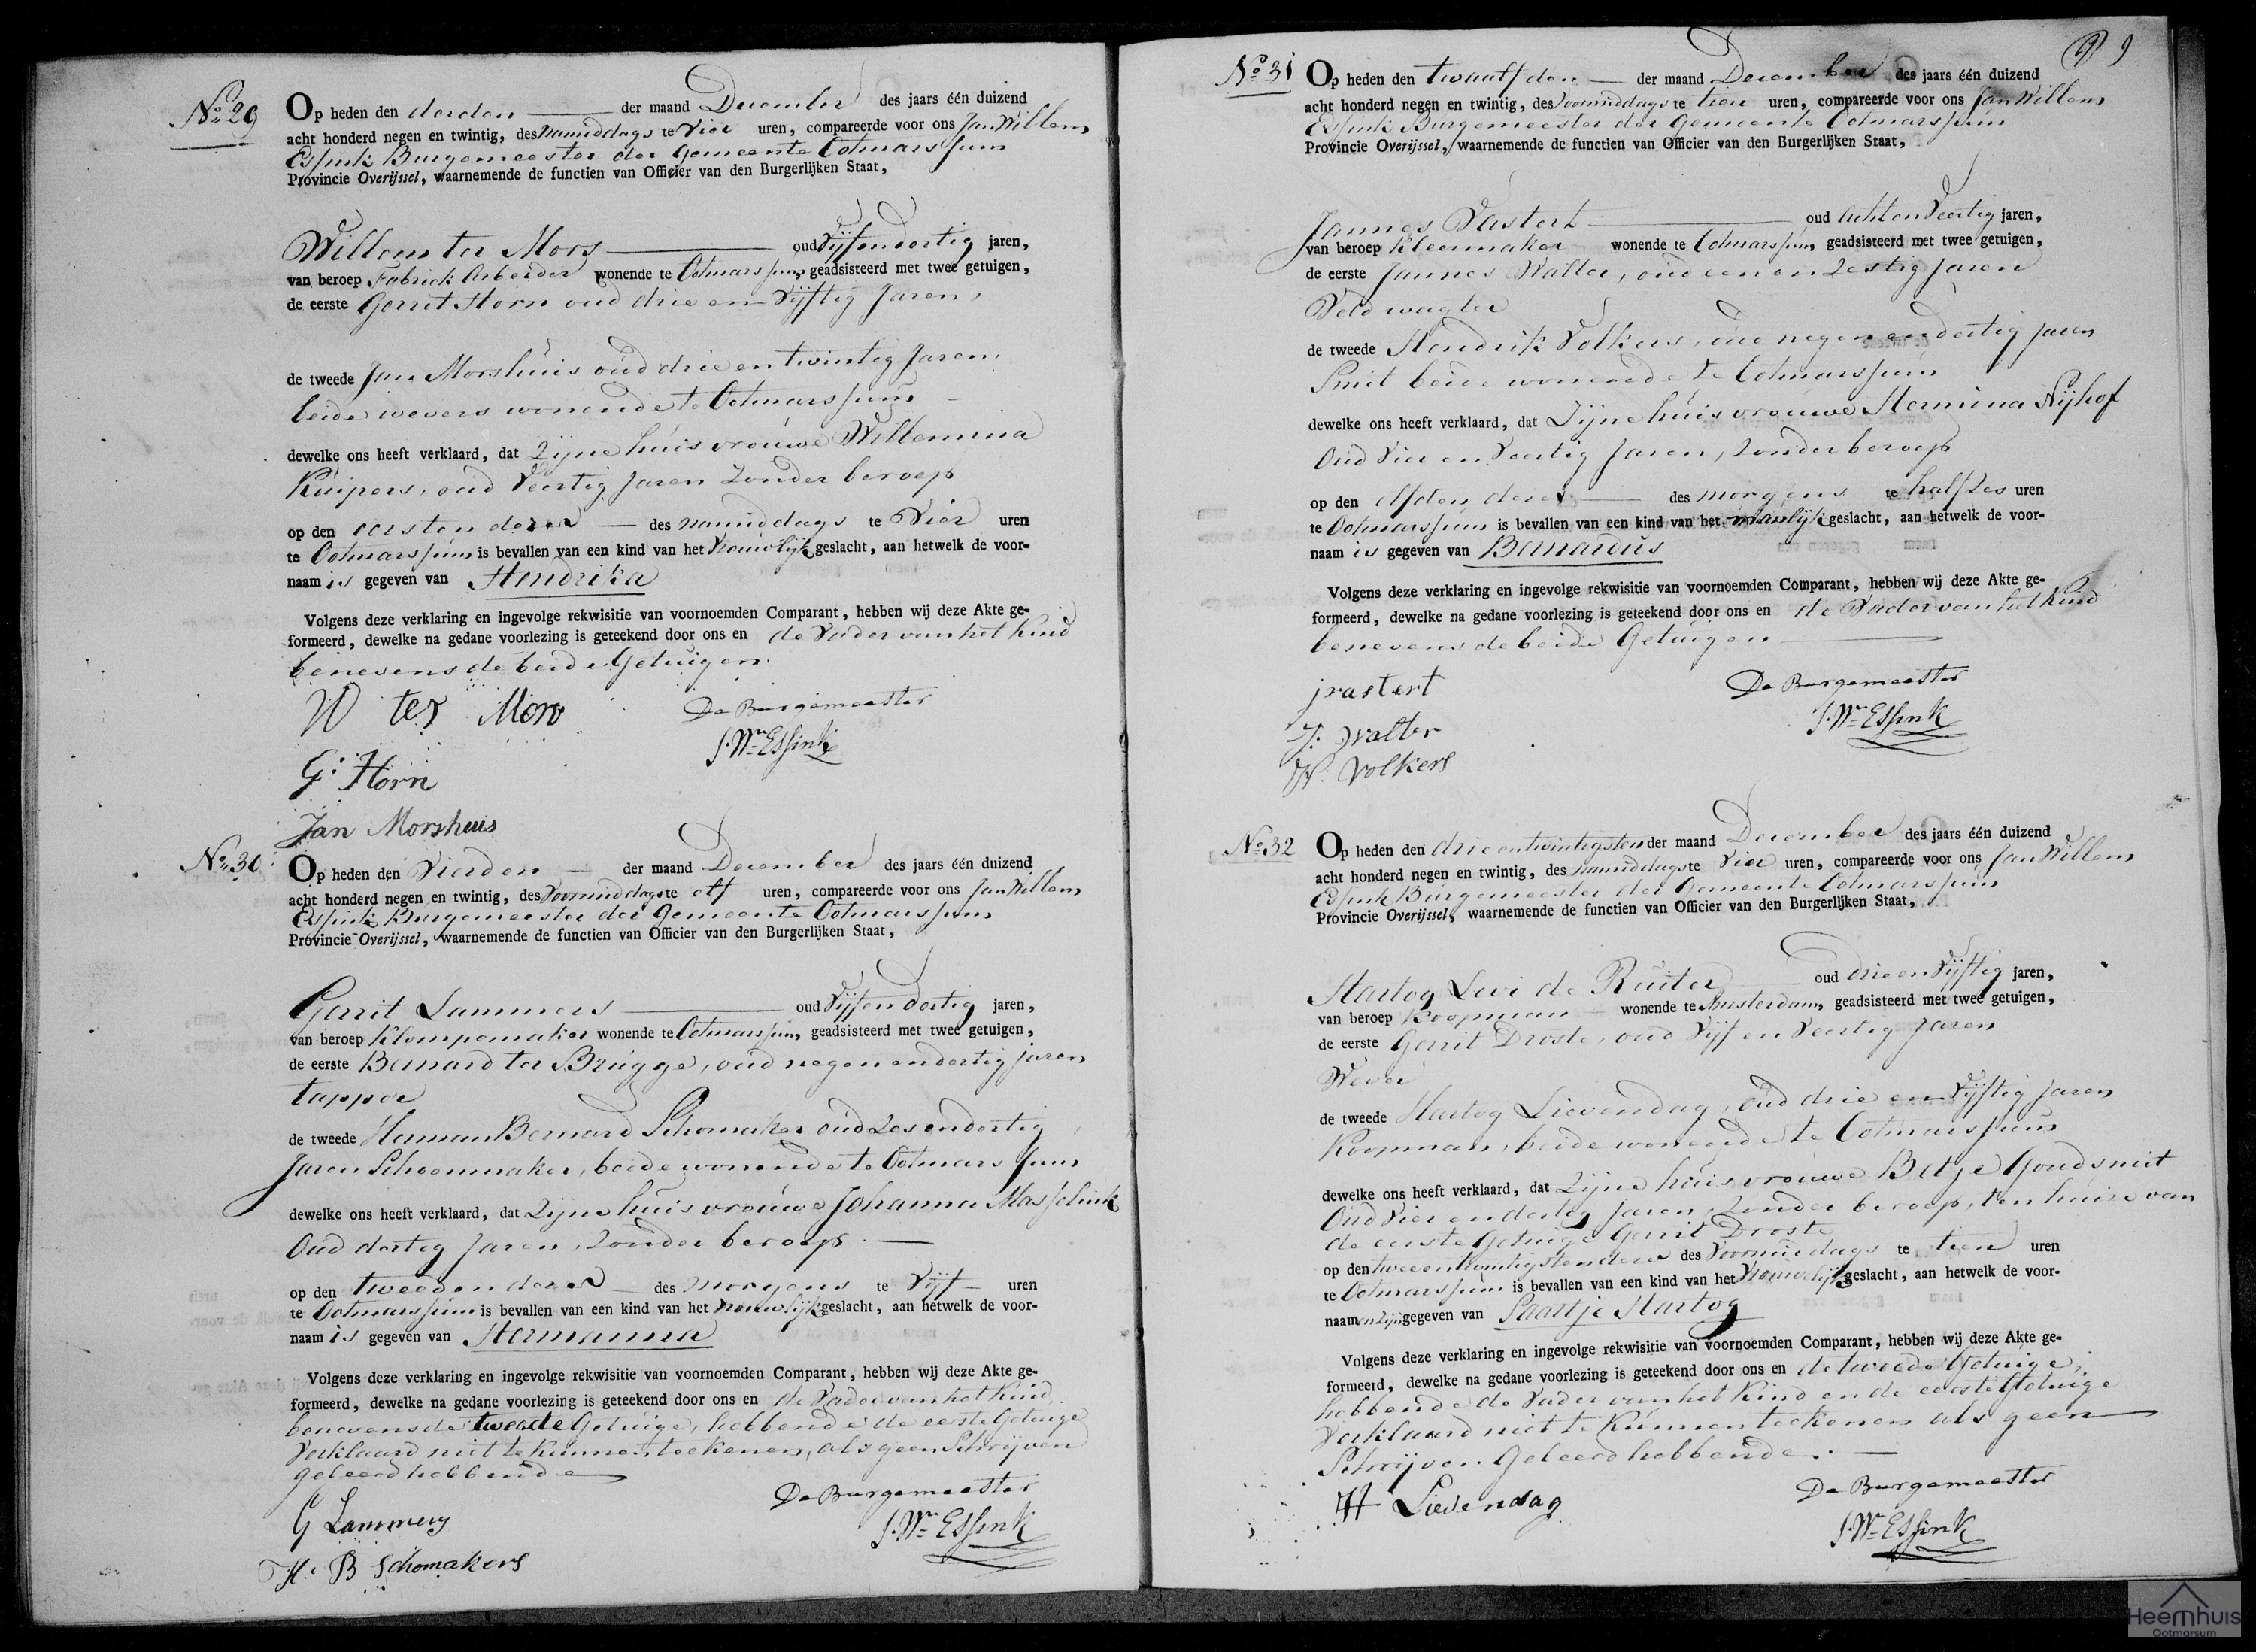 No 29
Op heden den derden der maand December des jaars één duizend
acht honderd negen en twintig, des namiddags te Vier uren, compareerde voor ons Jan Willem
Essink Burgemeester der Gemeente Ootmarssum
Provincie Overijssel, waarnemende de functien van Officier van den Burgerlijken Staat,
Willem ter Mors oud Vijfendertig jaren,
van beroep Fabriek Arbeider wonende te Ootmarssum, geadsisteerd met twee getuigen,
de eerste Gerrit Horn oud drie en Vijftig Jaren,
de tweede Jan Morshuis oud drie en twintig Jaren
beide wevers wonende te Ootmarssum
dewelke ons heeft verklaard, dat Zijne huisvrouwe Willemina
Kuipers, oud Veertig Jaren Zonder beroep
op den eersten dezer des namiddags te Vier uren
te Ootmarssum is bevallen van een kind van het Vrouwlijk geslacht, aan hetwelk de voor-
naam is gegeven van Hendrika
Volgens deze verklaring en ingevolge rekwisitie van voornoemden Comparant, hebben wij deze Akte ge-
formeerd, dewelke na gedane voorlezing is geteekend door ons en de Vader van het Kind
benevens de beide Getuigen.
W ter Mors De Burgemeester
J. Wm Essink
G: Horn
Jan Morshuis
No 30
Op heden den Vierden der maand December des jaars één duizend
acht honderd negen en twintig, des Voormiddags te elf uren, compareerde voor ons Jan Willem
Essink Burgemeester der Gemeente Ootmarssum
Provincie Overijssel, waarnemende de functien van Officier van den Burgerlijken Staat,
Gerrit Lammers oud Vijfendertig jaren,
van beroep Klompemaker wonende te Ootmarssum, geadsisteerd met twee getuigen,
de eerste Bernard ter Brugge, oud negenendertig jaren
tapper
de tweede Herman Bernard Schomaker oud Zesendertig
Jaren Schoenmaker, beide wonende te Ootmarssum
dewelke ons heeft verklaard, dat Zijne huisvrouwe Johanna Masselink
Oud dertig Jaren, Zonder beroep
op den tweeden dezer des morgens te Vijf uren
te Ootmarssum is bevallen van een kind van het Vrouwlijk geslacht, aan hetwelk de voor-
naam is gegeven van Hermanna
Volgens deze verklaring en ingevolge rekwisitie van voornoemden Comparant, hebben wij deze Akte ge-
formeerd, dewelke na gedane voorlezing is geteekend door ons en de Vader van het Kind
benevens de tweede Getuige, hebbende de eerste Getuige
Verklaard niet te Kunnen teekenen, als geen Schrijven
geleerd hebbende
G Lammers De Burgemeester
J. Wm Essink
H. B Schomakers
9 9
No 31
Op heden den twaalfden der maand December des jaars één duizend
acht honderd negen en twintig, des Voormiddags te tien uren, compareerde voor ons Jan Willem
Essink Burgemeester der Gemeente Ootmarssum
Provincie Overijssel, waarnemende de functien van Officier van den Burgerlijken Staat,
Jannes Vastert oud Achtenveertig jaren,
van beroep Kleermaker wonende te Ootmarssum, geadsisteerd met twee getuigen,
de eerste Jannes Walter, oud een en Zestig Jaren
Veldwagter
de tweede Hendrik Volkers, oud negenendertig Jaren
Smit beide wonende te Ootmarssum
dewelke ons heeft verklaard, dat Zijne huisvrouwe Hermina Nijhof
Oud Vier en Veertig Jaren, Zonder beroep
op den elfden dezer des morgens te half Zes uren
te Ootmarssum is bevallen van een kind van het manlijk geslacht, aan hetwelk de voor-
naam is gegeven van Bernardus
Volgens deze verklaring en ingevolge rekwisitie van voornoemden Comparant, hebben wij deze Akte ge-
formeerd, dewelke na gedane voorlezing is geteekend door ons en de Vader van het Kind
benevens de beide Getuigen
j vastert De Burgemeester
J. Wm Essink
J: Walter
H. Volkers
No 32
Op heden den drie en twintigsten der maand December des jaars één duizend
acht honderd negen en twintig, des namiddags te Vier uren, compareerde voor ons Jan Willem
Essink Burgemeester der Gemeente Ootmarssum
Provincie Overijssel, waarnemende de functien van Officier van den Burgerlijken Staat,
Hartog Levi de Ruiter oud drie en Vijftig jaren,
van beroep Koopman wonende te Amsterdam, geadsisteerd met twee getuigen,
de eerste Gerrit Droste, oud Vijf en Veertig Jaren
Wever
de tweede Hartog Lievendag, oud drie en Vijftig Jaren
Koopman, beide wonende te Ootmarssum
dewelke ons heeft verklaard, dat Zijne huisvrouwe Betje Goudsmit
Oud Vier en dertig Jaren, Zonder beroep, ten huize van
de eerste Getuige Gerrit Droste
op den tweeentwintigsten dezer des Voormiddags te tien uren
te Ootmarssum is bevallen van een kind van het Vrouwelijk geslacht, aan hetwelk de voor-
naamen zijn gegeven van Saartje Hartog
Volgens deze verklaring en ingevolge rekwisitie van voornoemden Comparant, hebben wij deze Akte ge-
formeerd, dewelke na gedane voorlezing is geteekend door ons en de tweede Getuige,
hebbende de Vader van het Kind en de eerste Getuige
Verklaard niet te Kunnen teekenen als geen
Schrijven Geleerd hebbende.
H Lievendag De Burgemeester
J. Wm Essink
Heemhuis
Ootmarsum